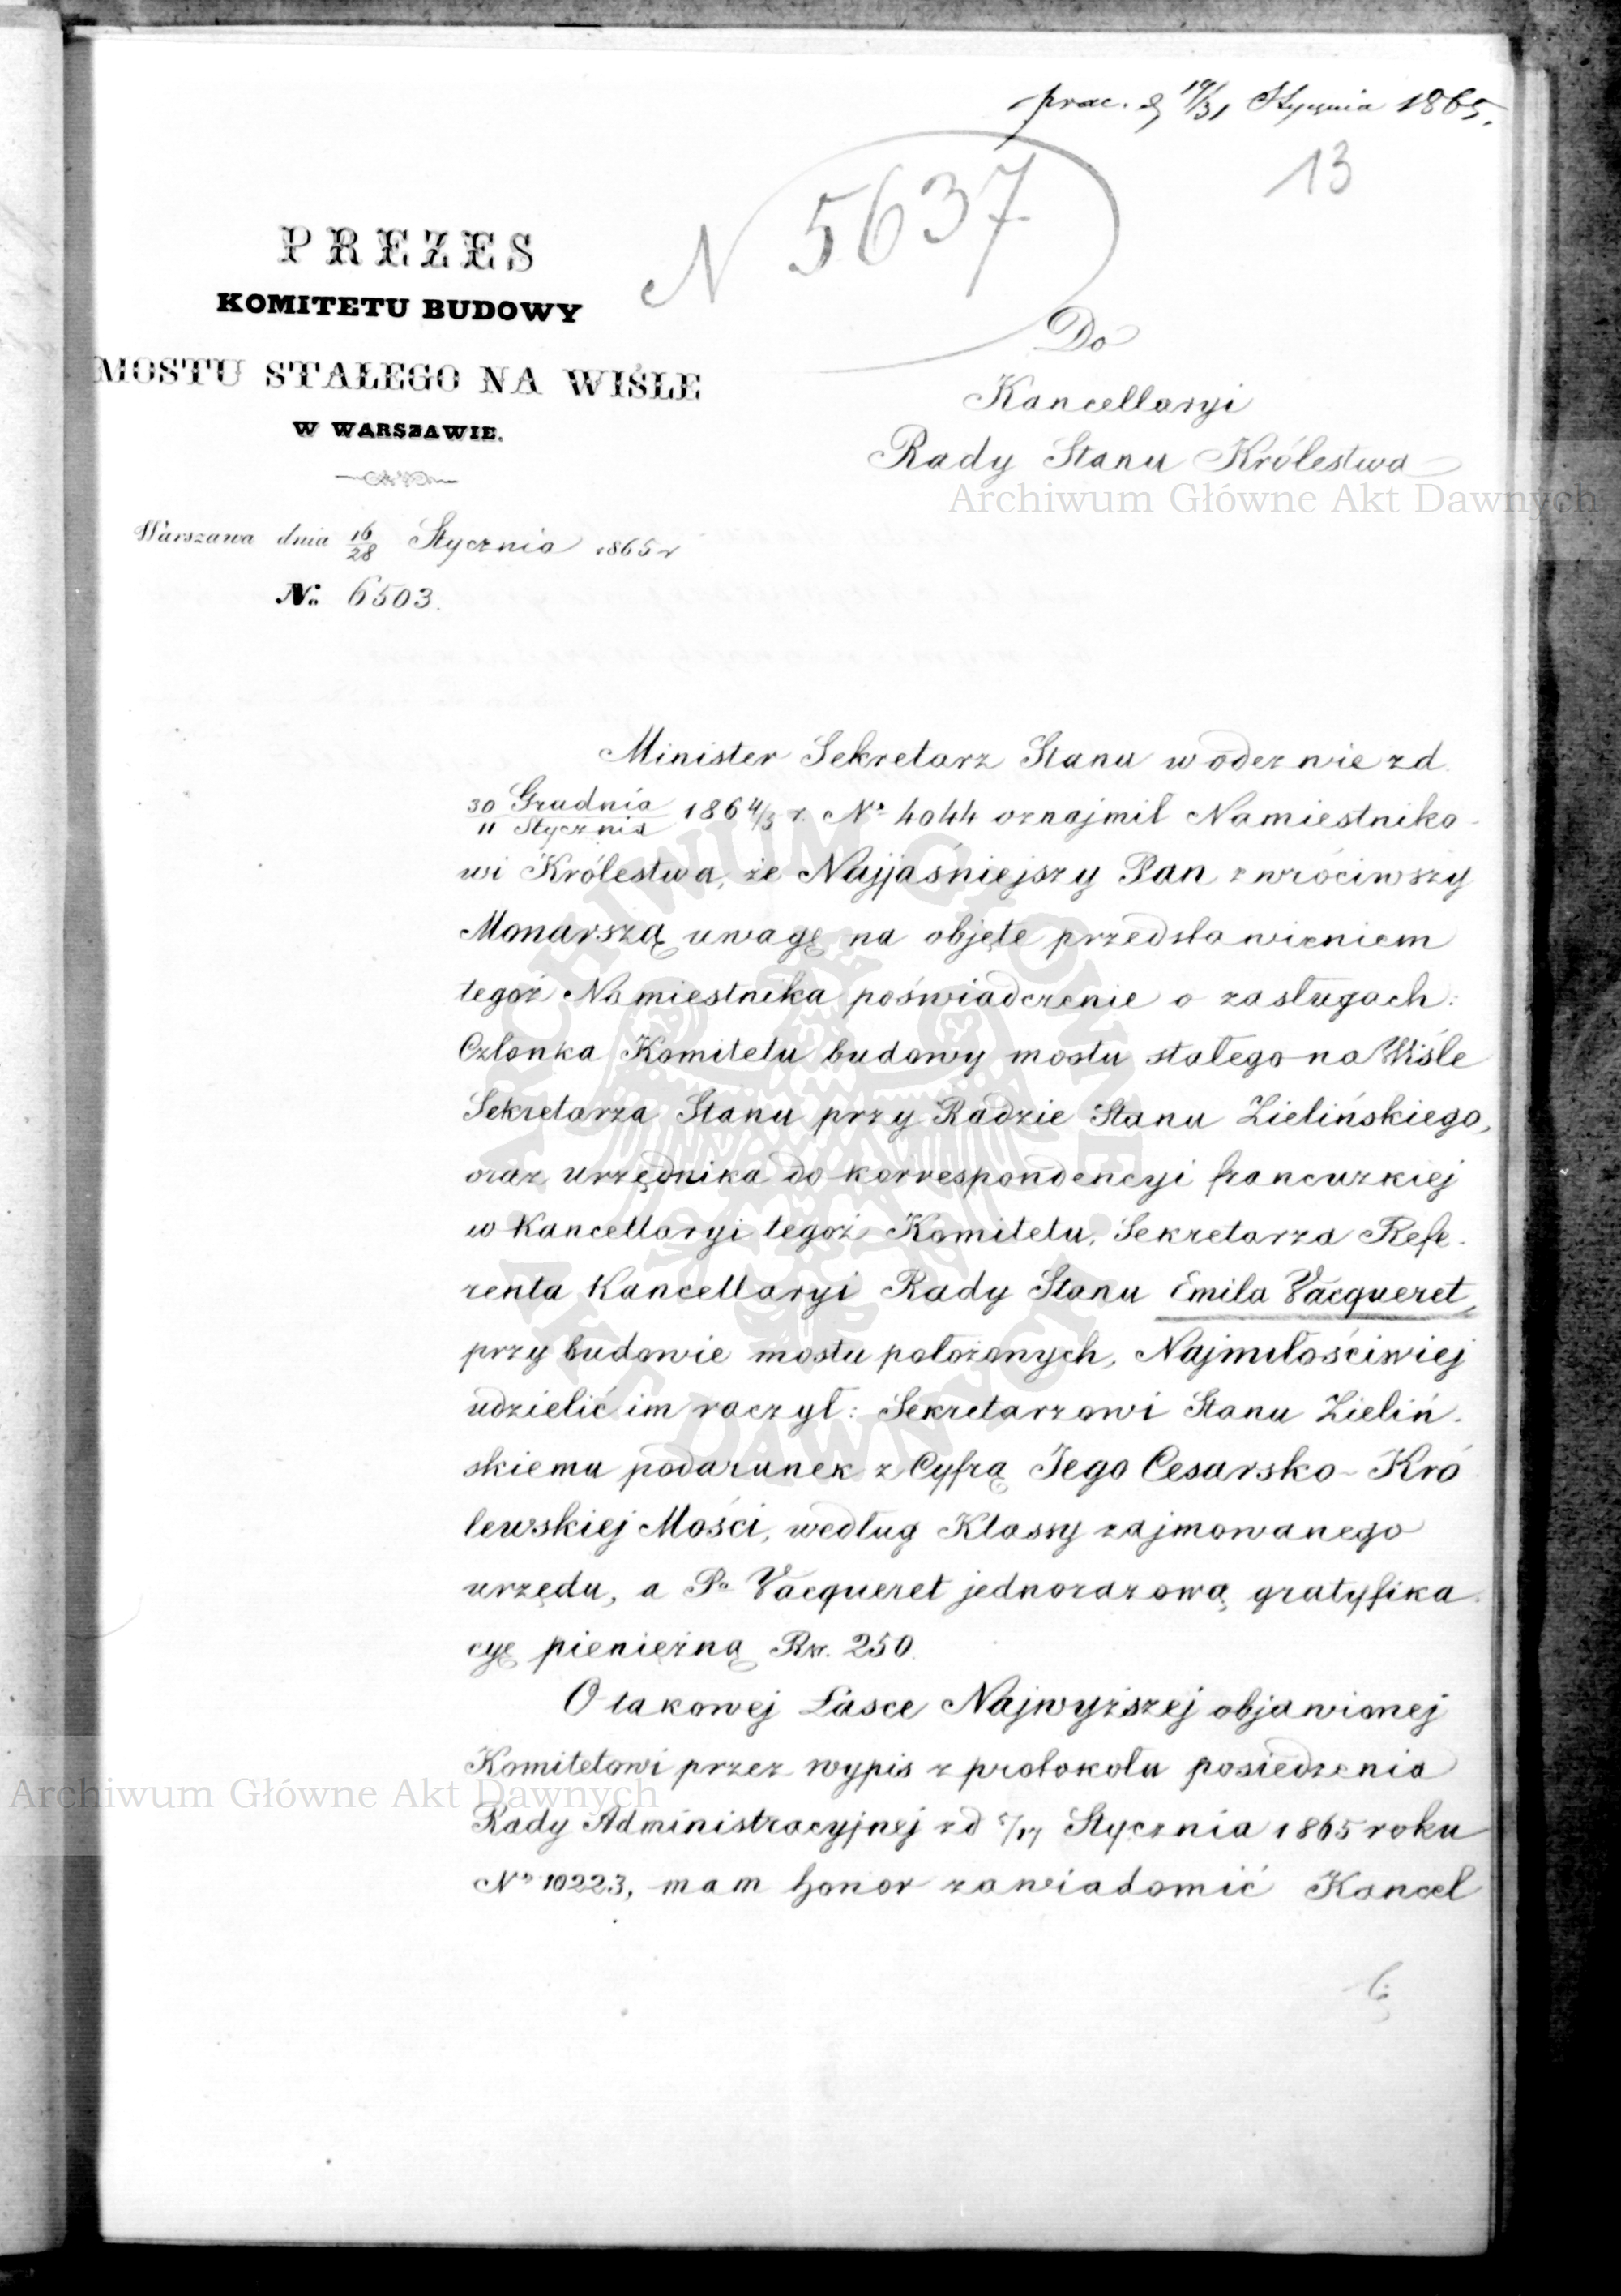 prac. d 19/31 Stycznia 1865.
13
N 5637
PREZES
KOMITETU BUDOWY
MOSTU STAŁEGO NA WIŚLE
W WARSZAWIE.
Warszawa dnia 16/28 Stycznia 1865 r
No. 6503.
Do
Kancellaryi
Rady Stanu Królestwa
Archiwum Główne Akt Dawnych
Minister Sekretarz Stanu w odezwie z d.
30 Grudnia / 11 Stycznia 1864/5 r. No 4044 oznajmił Namiestniko-
wi Królestwa, że Najjaśniejszy Pan zwróciwszy
Monarszą uwagę na objęte przedstawieniem
tegoż Namiestnika poświadczenie o zasługach:
Członka Komitetu budowy mostu stałego na Wiśle
Sekretarza Stanu przy Radzie Stanu Zielińskiego,
oraz urzędnika do korrespondencyi francuzkiej
w Kancellaryi tegoż Komitetu, Sekretarza Refe-
renta Kancellaryi Rady Stanu Emila Vacqueret,
przy budowie mostu położonych, Najmiłościwiej
udzielić im raczył: Sekretarzowi Stanu Zieliń-
skiemu podarunek z Cyfrą Jego Cesarsko-Kró
lewskiej Mości, według Klassy zajmowanego
urzędu, a Pu Vacqueret jednorazową gratyfika-
cyę pieniężną Rsr. 250.
O takowej Łasce Najwyższej objawionej
Komitetowi przez wypis z protokołu posiedzenia
Archiwum Główne Akt Dawnych
Rady Administracyjnej z d 5/17 Stycznia 1865 roku
No 10223, mam honor zawiadomić Kancel
ARCHIWUM GŁÓWNE AKT DAWNYCH